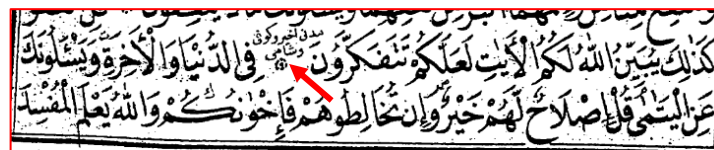 كَذٰلِكَ يُبَيِّنُ اللّٰهُ لَكُمُ الْاٰيٰتِ لَعَلَّكُمْ تَتَفَكَّرُوْنَ فِي الدُّنْيَا وَالْاٰخِرَةِ وَيَسْـَٔلُوْنَكَ
عَنِ الْيَتٰمٰى قُلْ اِصْلَاحٌ لَّهُمْ خَيْرٌ وَاِنْ تُخَالِطُوْهُمْ فَاِخْوَانُكُمْ وَاللّٰهُ يَعْلَمُ الْمُفْسِدَ